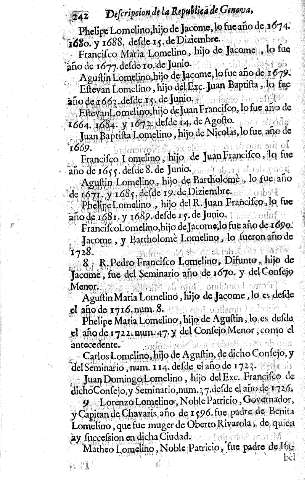 242 Descripcion de la Republica de Genova,
Phelipe Lomelino, hijo de Jacome, lo fue año de 1674.
1680. y 1688. desde 15. de Diziembre.
Francisco Maria Lomelino, hijo de Jacome, lo fue
año de 1677. desde 10. de Junio.
Agustin Lomelino, hijo de Jacome, lo fue año de 1679.
Estevan Lomelino, hijo del Exc. Juan Baptista, lo fue
año de 1662. desde 15. de Junio.
Estevan Lomelino, hijo de Juan Francisco, lo fue año de
1664. 1684. y 1673. desde 14. de Agosto.
Juan Baptista Lomelino, hijo de Nicolas, lo fue año de
1669.
Francisco Lomelino, hijo de Juan Francisco, lo fue
año de 1655. desde 8. de Junio.
Agustin Lomelino, hijo de Bartholomè, lo fue año
de 1671. y 1685. desde 19. de Diziembre.
Phelipe Lomelino, hijo del R. Juan Francisco, lo fue
año de 1681. y 1689. desde 15. de Junio.
Francisco Lomelino, hijo de Jacome, lo fue año de 1690.
Jacome, y Bartholomè Lomelino, lo fueron año de
1728.
8 R. Pedro Francisco Lomelino, Difunto, hijo de
Jacome, fue del Seminario año de 1670. y del Consejo
Menor.
Agustin Maria Lomelino, hijo de Jacome, lo es desde
el año de 1716. num. 8.
Phelipe Maria Lomelino, hijo de Agustin, lo es desde
el año de 1722. num. 47. y del Consejo Menor, como el
antecedente.
Carlos Lomelino, hijo de Agustin, de dicho Consejo, y
del Seminario, num. 114. desde el año de 1723.
Juan Domingo Lomelino, hijo del Exc. Francisco de
dicho Consejo, y Seminario, num. 37. desde el año de 1726.
9 Lorenzo Lomelino, Noble Patricio, Governador,
y Capitan de Chavari, año de 1596. fue padre de Benita
Lomelino, que fue muger de Oberto Rivarola, de quien
ay succession en dicha Ciudad.
Matheo Lomelino, Noble Patricio, fue padre de